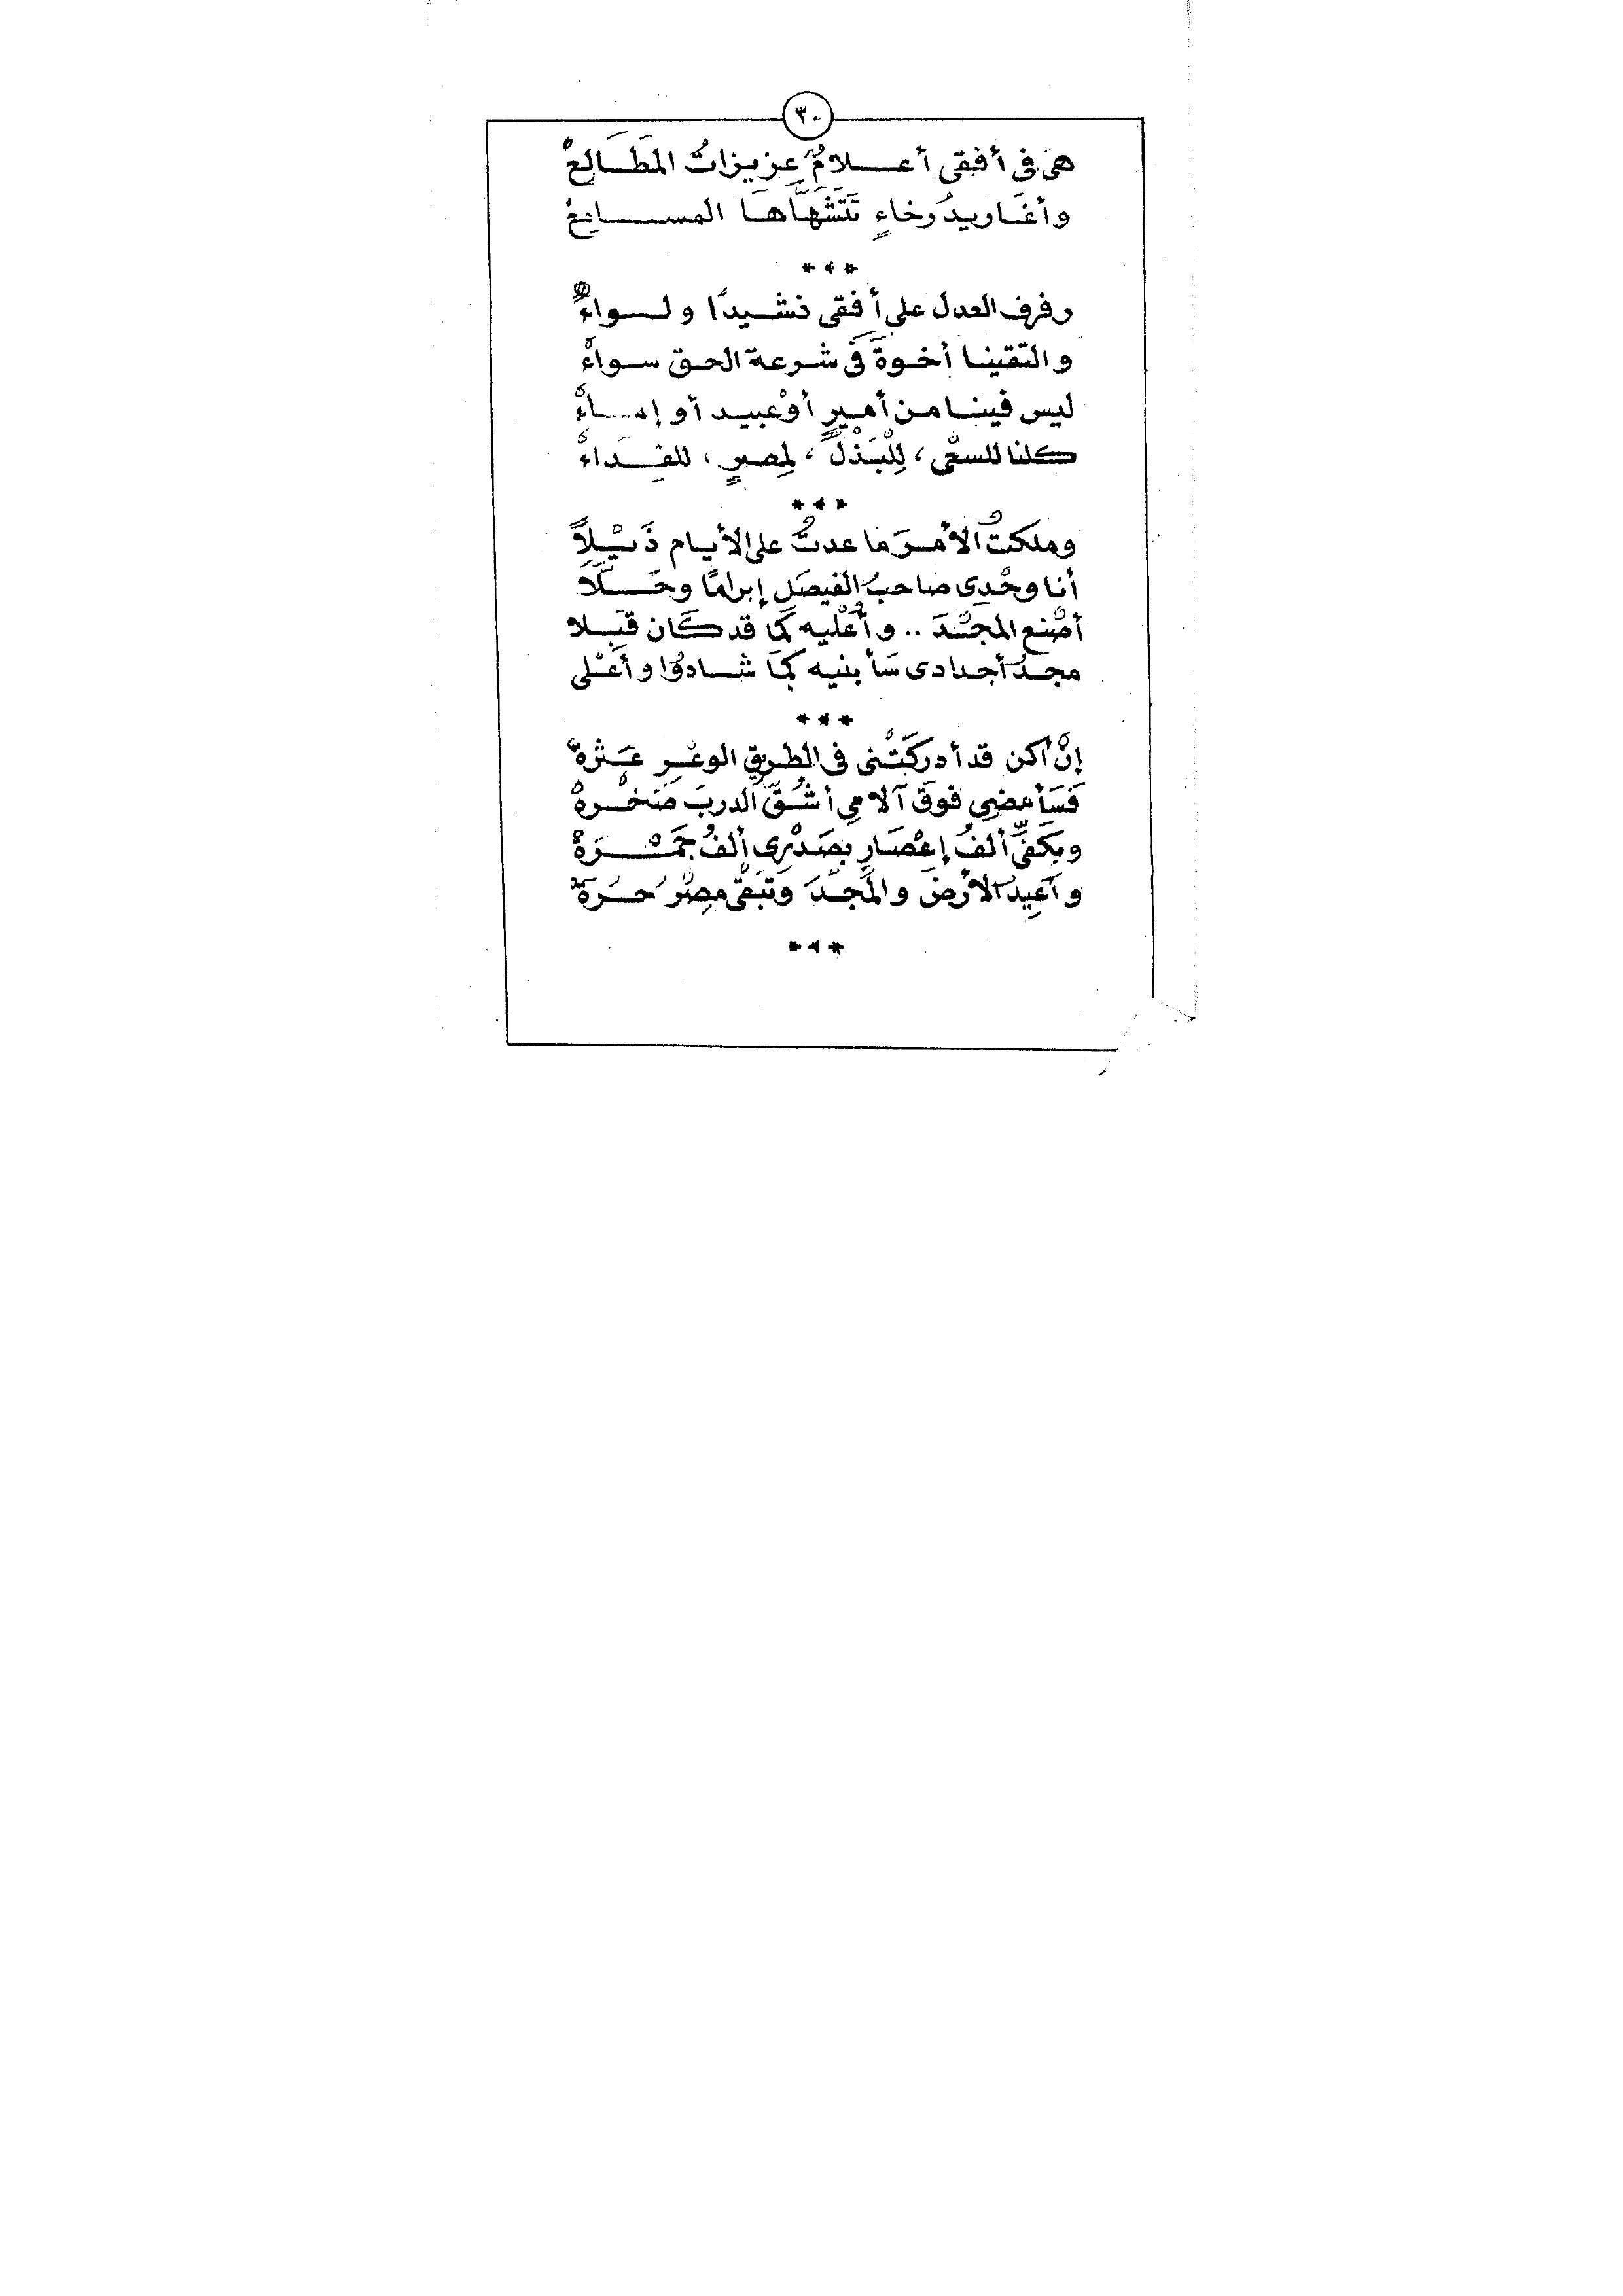 ٣٠
هىَ فى أفقى أعـــلامٌ عزيزاتُ المَطَـالعْ
وأغَـاريدُ رخاءٍ تَتَشَهَّاهـَا المســـامعْ
* * *
رفرف العدل على أفقى نشـيدًا ولـــواءْ
والتقينـا أخـوةً فى شـرعة الحـق سـواءْ
ليس فينـا مـن أمـيرٍ أوْ عبيـد أو إمـــاءْ
كلنا للسعْى ، لِلْبَـذْلِ ، لمصـرٍ ، للفِــدَاءْ
* * *
وملكتُ الأمـرَ ما عدتُ على الأيـام ذَيْـلاً
أنا وحْدِى صاحبُ الفيصَلِ إبرامًا وحَـــلَّا
أصْنع المجْـدَ .. وأُعْليه كَما قد كَان قَبـلا
مجـدُ أجدادى سَأبنيه كَمَا شـادوُا وأعْـلى
* * *
إنْ أكن قد أدركَتْنى فى الطريقِ الوعْـرِ عَـثْرةْ
فَسَأمضِى فوقَ آلامىِ أشُـقّ الدربَ صَخْـرهْ
وبكَفىِّ ألفُ إعْصَـارٍ بصَـدْرِى ألفُ جَمْــرَةْ
وأعِيدُ الأرْضَ والمَجْـدَ وَتبْقَى مِصْرُ حُـرَةْ
* * *